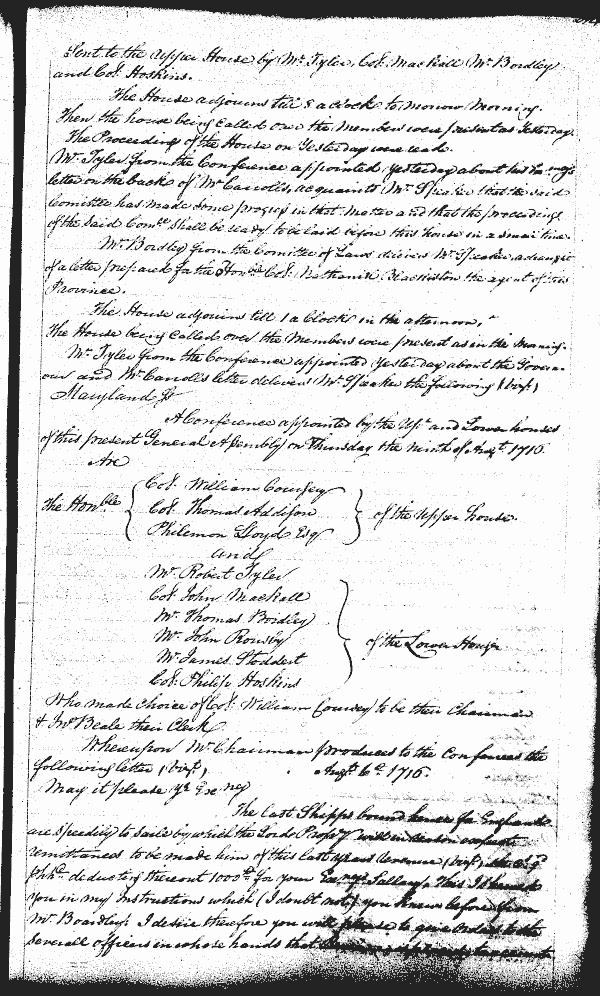 Sent to the Upper House by Mr. Tyler, Col. Mackall Mr. Bordley
and Col. Hoskins.
The House adjourns till 8 a clock to morrow morning.
Then the house being called over the members were present as Yesterday.
The Proceedings of the House on Yesterday were read.
Mr. Tyler from the Conference appointed yesterday about his
letter on the backs of Mr. Carrolls, acquaints Mr. Speaker that the said
Comittee has made some progress in that matter and that the proceedings
of the said Comee. shall be ready to be laid before this house in a small time.
Mr. Bordley from the Comittee of Laws delivers Mr. Speaker
of a letter prepared for the Honble. Col. Nathaniel Blackiston the agent of this
Province.
The House adjourns till 1 a Clock in the afternoon,
The House being Called over the Members were present as in the morning.
Mr. Tyler from the Conference appointed Yesterday about the Gover-
nour and Mr. Carrolls letter delivers Mr. Speaker the following (vizt.)
Maryland Ss.
A Conference appointed by the Upr. and Lower houses
of this present General Assembly on Thursday the ninth of Augt. 1716.
Are
The Honble. { Col. William Coursey
Col. Thomas Addison
Philemon Lloyd Esq } of the Upper house.
and
Mr. Robert Tyler
Col. John Mackall
Mr. Thomas Bordley
Mr. John Rousby
Mr. James Stoddert
Col: Philip Hoskins } of the Lower House
Who made choice of Col. William Coursey to be their Chairman
& Jno. Beale their Clerk
Whereupon Mr. Chairman produces to the Conferees the
following letter (vizt.) Augt. 6th. 1716.
May it please yr. Exc.ncy
The last Shipps bound hence for England
are speeding to saile by which the Lords Propry will in
remittances to be made him of this last years Revenue (vizt.)
deducting thereout 1000 for your Exncys Sallary. This I
you in my Instructions which (I doubt not) you knew before from
Mr. Bordley. I desire therefore you will please to give orders to the
severall officers in whose hands that